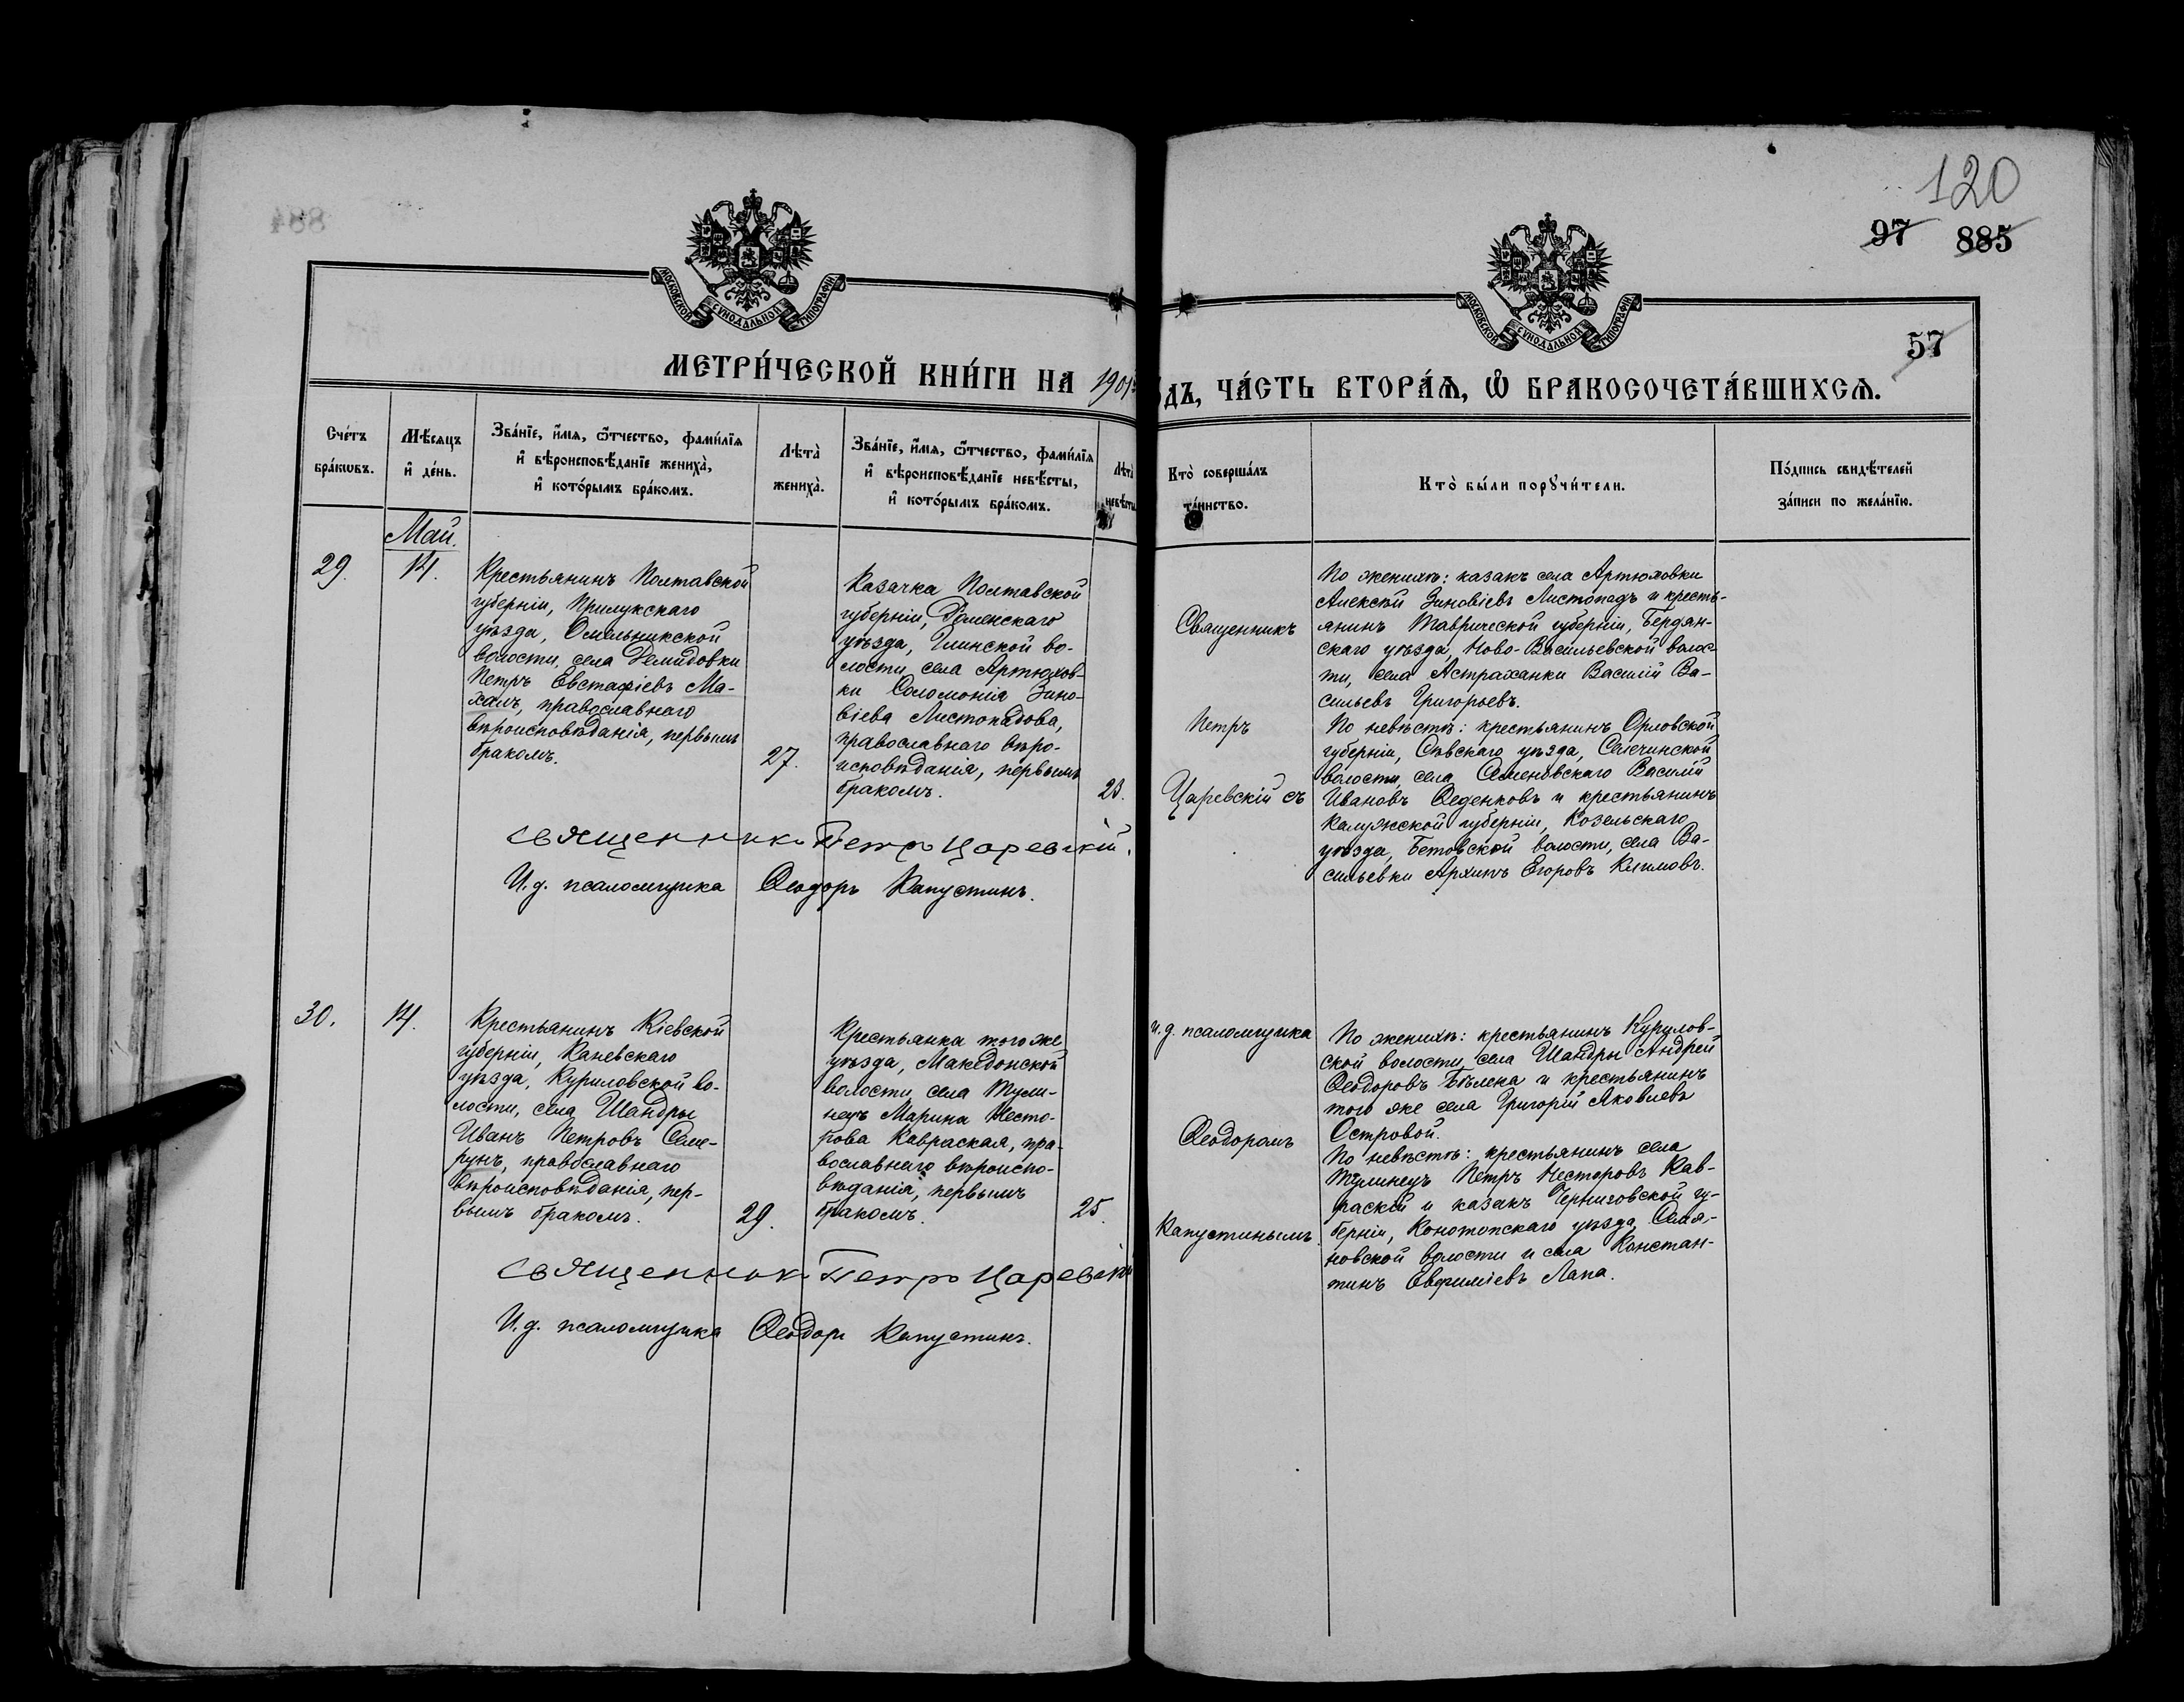 120
97 885
57
МОСКОВСКОЙ СѴНОДАЛЬНОЙ ТИПОГРАФІИ
МОСКОВСКОЙ СѴНОДАЛЬНОЙ ТИПОГРАФІИ
МЕТРИ́ЧЕСКОЙ КНИ́ГИ НА 1901
ОДЪ, ЧА́СТЬ ВТОРА́Ѧ, Ѽ БРАКОСОЧЕТА́ВШИХСѦ.
Сче́тъ
бра́кѡвъ.
Мѣ́сяцъ
и҆ де́нь.
Зва́нїе, и҆́мѧ, ѻ҆́тчество, фами́лїѧ
и҆ вѣроисповѣ́данїе жениха̀,
и҆ кото́рымъ бра́комъ.
Лѣта̀
жениха̀.
Зва́нїе, и҆́мѧ, ѻ҆́тчество, фами́лїѧ
и҆ вѣроисповѣ́данїе невѣ́сты,
и҆ кото́рымъ бра́комъ.
Лѣта̀
невѣ́сты
Кто̀ соверша́лъ
та́инство.
Кто̀ бы́ли порꙋчи́тели.
По́дпись свидѣ́телей
за́писи по жела́нїю.
Май.
29.
14.
Крестьянинъ Полтавской
губерніи, Прилукскаго
уѣзда, Омельникской
волости, села Демидовки
Петръ Евстафіевъ Ма-
халъ, православнаго
вѣроисповѣданія, первымъ
бракомъ.
27.
Казачка Полтавской
губерніи, Роменскаго
уѣзда, Глинской во-
лости, села Артюхов-
ки Соломонія Зино-
віева Листопадова,
православнаго вѣро-
исповѣданія, первымъ
бракомъ.
23.
Священникъ
Петръ
Царевскій съ
По женихѣ: казакъ села Артюховки
Алексѣй Зиновіевъ Листопадъ и кресть-
янинъ Таврической губерніи, Бердян-
скаго уѣзда, Ново-Васильевской волос-
ти, села Астраханки Василій Ва-
сильевъ Григорьевъ.
По невѣстѣ: крестьянинъ Орловской
губерніи, Сѣвскаго уѣзда, Салтчинской
волости, села Семеновскаго Василій
Ивановъ Ѳеденковъ и крестьянинъ
Калужской губерніи, Козельскаго
уѣзда, Бетовской волости, села Ва-
сильевки Архипъ Егоровъ Климовъ.
священникъ Петръ Царевскій.
И. д. псаломщика Ѳеодоръ Капустинъ.
30.
14.
Крестьянинъ Кіевской
губерніи, Каневскаго
уѣзда, Куриловской во-
лости, села Шандры
Иванъ Петровъ Семе-
рунъ, православнаго
вѣроисповѣданія, пер-
вымъ бракомъ.
29.
Крестьянка того же
уѣзда, Македонской
волости, села Тули-
нецъ Марина Несто-
рова Кавраская, пра-
вославнаго вѣроиспо-
вѣданія, первымъ
бракомъ.
25.
и. д. псаломщика
Ѳеодоромъ
Капустинымъ.
По женихѣ: крестьянинъ Курилов-
ской волости, села Шандры Андрей
Ѳеодоровъ Бѣлека и крестьянинъ
того же села Григорій Яковлевъ
Островой.
По невѣстѣ: крестьянинъ села
Тулинецъ Петръ Нестеровъ Кав-
раскій и казакъ Черниговской гу-
берніи, Конотопскаго уѣзда, Смя-
новской волости и села Констан-
тинъ Евфиміевъ Лапа.
священникъ Петръ Царевскій
И. д. псаломщика Ѳеодоръ Капустинъ.